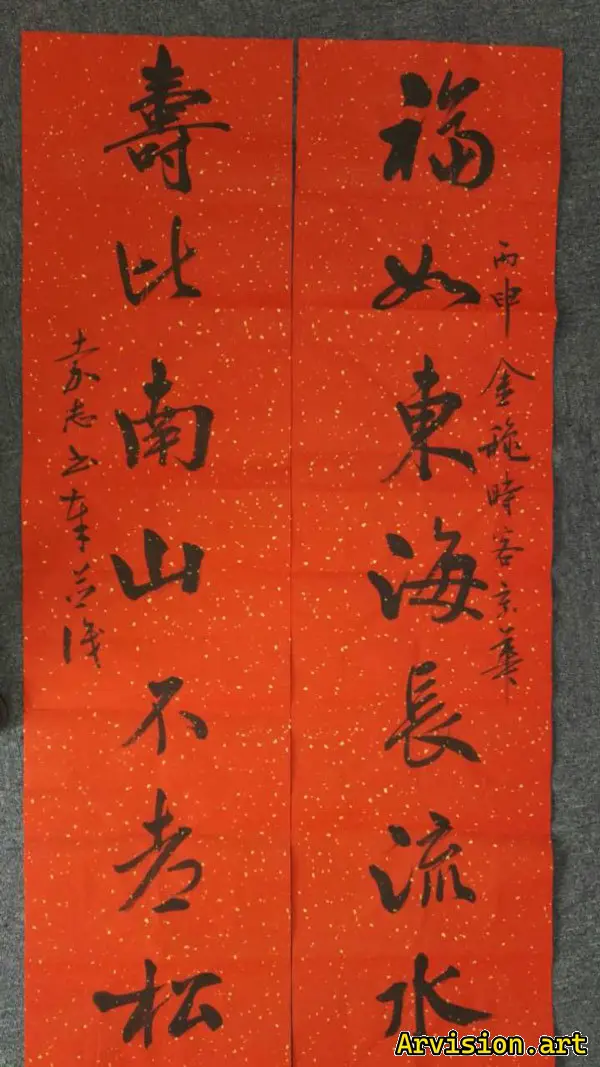 福如東海長流水
丙申金秋時客京華
壽比南山不老松
袁志山書并識
Arvision.art